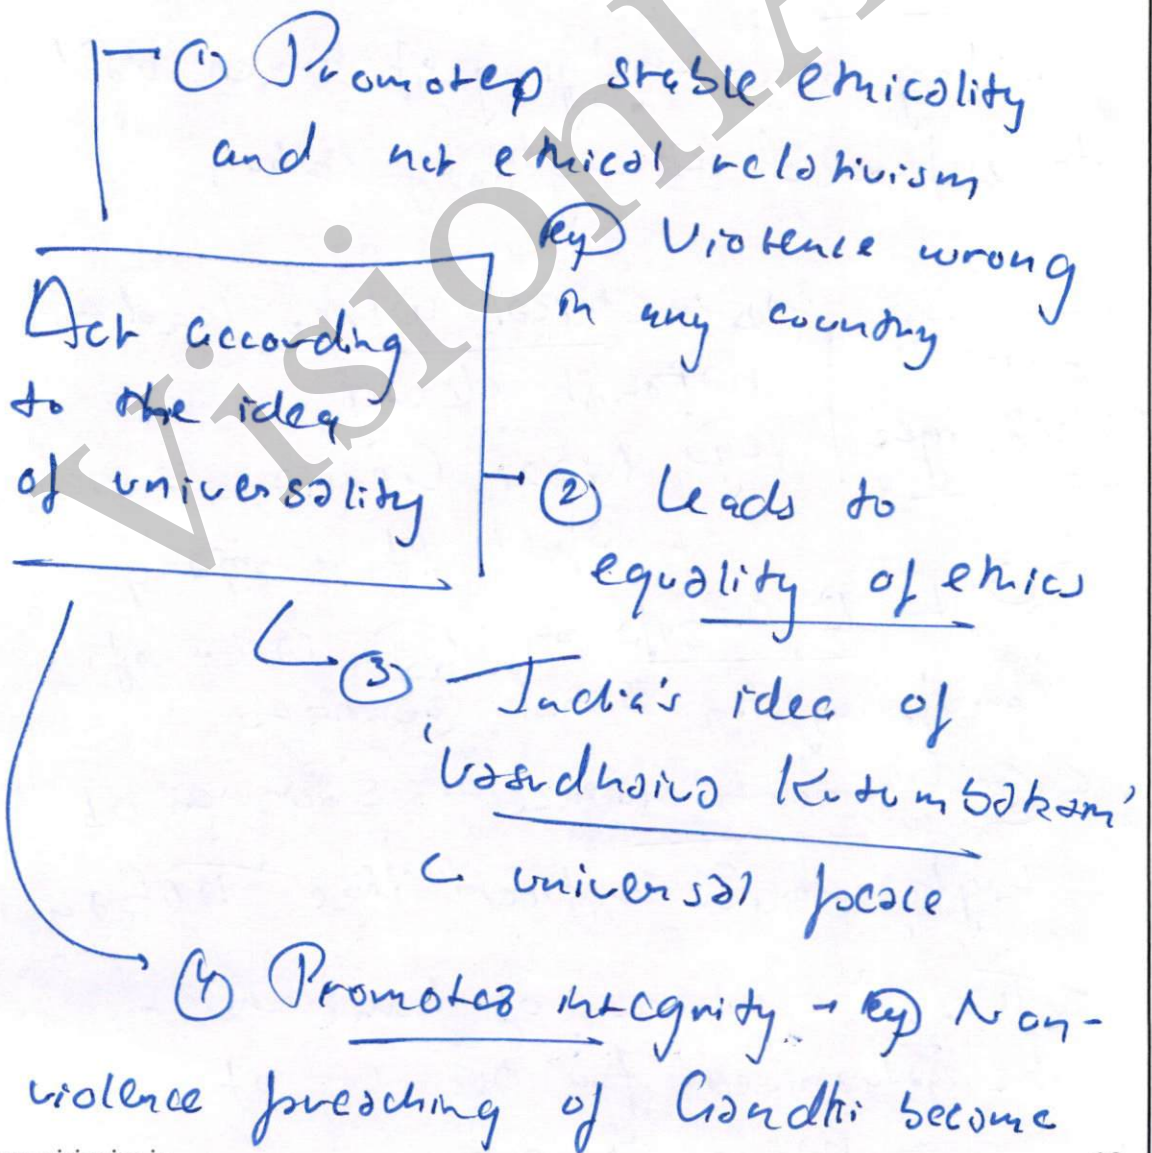 ① Promotes stable ethicality
and not ethical relativism
eg) Violence wrong
in any country
Act according
to the idea
of universality
② Leads to
equality of ethics
③ India's idea of
'Vasudhaiva Kutumbakam'
universal peace
④ Promotes integrity → eg) Non-
violence preaching of Gandhi become
VisionIA